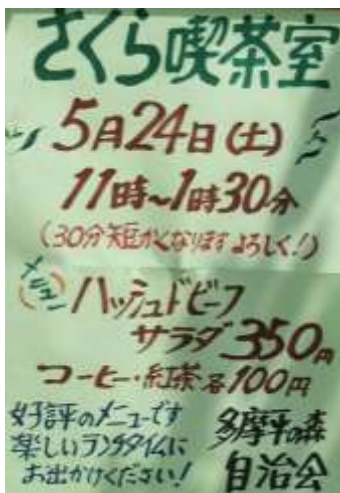 さくら喫茶室
5月24日(土)
11時~1時30分
(30分短かくなります よろしく!)
メニュー
ハッシュドビーフ
サラダ 350円
コーヒー・紅茶 各100円
好評のメニューです
楽しいランチタイムに
お出かけください!
多摩平の森
自治会